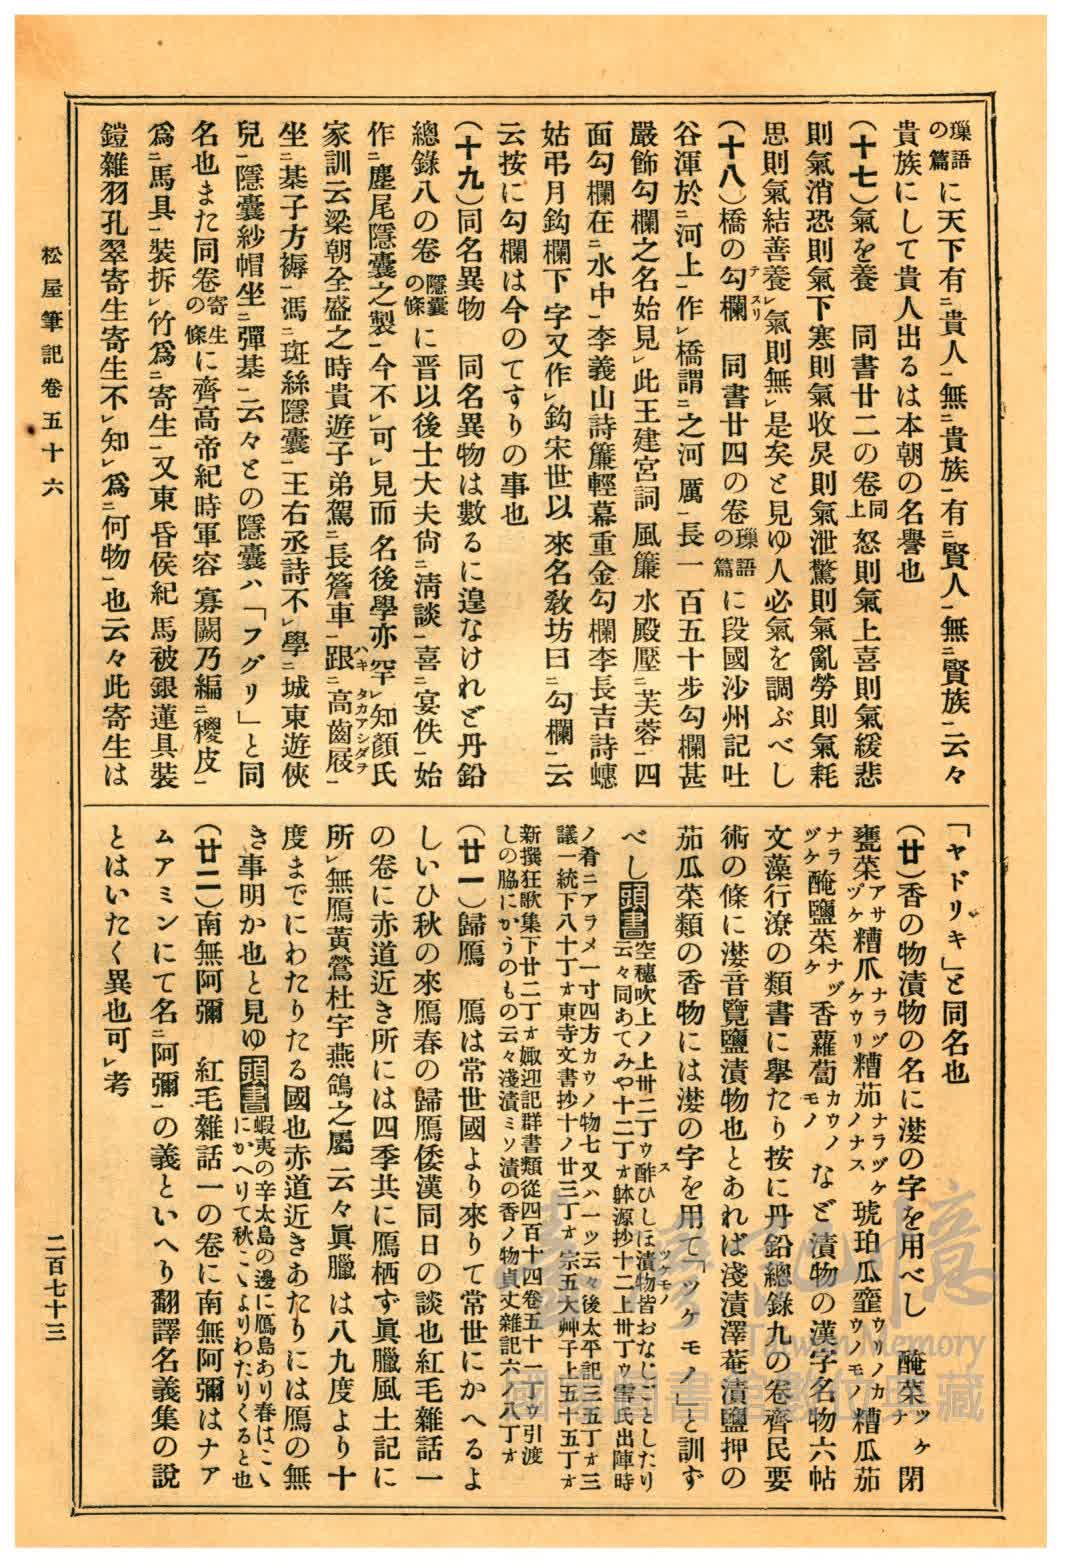 璅語の篇に天下有ニ貴人一無ニ貴族一有ニ賢人一無ニ賢族一云々
貴族にして貴人出るは本朝の名譽也
(十七)氣を養　同書廿二の卷同上怒則氣上喜則氣緩悲
則氣消恐則氣下寒則氣收炅則氣泄驚則氣亂勞則氣耗
思則氣結善養レ氣則無レ是矣と見ゆ人必氣を調ぶべし
(十八)橋の勾欄テスリ　同書廿四の卷璅語の篇に段國沙州記吐
谷渾於ニ河上一作レ橋謂ニ之河厲一長一百五十步勾欄甚
嚴飾勾欄之名始見レ此王建宮詞風簾水殿壓ニ芙蓉一四
面勾欄在ニ水中一李義山詩簾輕幕重金勾欄李長吉詩蟪
姑弔月鈎欄下字又作レ鈎宋世以來名敎坊曰ニ勾欄一云
云按に勾欄は今のてすりの事也
(十九)同名異物　同名異物は數るに遑なけれど丹鉛
總錄八の卷隱囊の條に晋以後士大夫尙ニ淸談一喜ニ宴佚一始
作ニ麈尾隱囊之製一今不レ可レ見而名後學亦罕レ知顏氏
家訓云梁朝全盛之時貴遊子弟駕ニ長簷車一跟ハキニ高齒屐タカアシダヲ一
坐ニ棊子方褥一馮ニ斑絲隱囊一王右丞詩不レ學ニ城東遊俠
兒一隱囊紗帽坐ニ彈棊一云々との隱囊ハ「フグリ」と同
名也また同卷寄生の條に齊高帝紀時軍容寡闕乃編ニ椶皮一
爲ニ馬具一裝拆レ竹爲ニ寄生一又東昏侯紀馬被銀蓮具裝
鎧雜羽孔翠寄生寄生不レ知レ爲ニ何物一也云々此寄生は
「ヤドリキ」と同名也
(廿)香の物漬物の名に濋の字を用べし　醃菜ツケナ閉
甕菜アサヅケ糟爪ナラヅケウリ糟茄ナラヅケノナス琥珀瓜虀ウリノカウノモノ糟瓜茄
ナラヅケ醃鹽菜ナヅケ香蘿蔔カウノモノなど漬物の漢字名物六帖
文藻行潦の類書に擧たり按に丹鉛總錄九の卷齊民要
術の條に濋音覽鹽漬物也とあれば淺漬澤菴漬鹽押の
茄瓜菜類の香物には濋の字を用て「ツケモノ」と訓ず
べし頭書空穗吹上ノ上卅二丁ウ酢スひしほ漬物ツケモノ皆おなじごとしたり
云々同あてみや十二丁オ躰源抄十二上卅丁ウ雪氏出陣時
ノ肴ニアラメ一寸四方カウノ物七又ハ一ツ云々後太平記三五丁オ三
議一統下八十丁オ東寺文書抄十ノ廿三丁オ宗五大艸子上五十五丁オ
新撰狂歌集下廿二丁オ娵迎記群書類從四百十四卷五十一丁ウ引渡
しの脇にかうのもの云々淺漬ミソ漬の香ノ物貞丈雜記六ノ八丁オ
(廿一)歸鴈　鴈は常世國より來りて常世にかへるよ
しいひ秋の來鴈春の歸鴈倭漢同日の談也紅毛雜話一
の卷に赤道近き所には四季共に鴈栖ず眞臘風土記に
所レ無鴈黃鶯杜宇燕鴿之屬云々眞臘は八九度より十
度までにわたりたる國也赤道近きあたりには鴈の無
き事明か也と見ゆ頭書蝦夷の辛太島の邊に鴈島あり春はこゝ
にかへりて秋こゝよりわたりくると也
(廿二)南無阿彌　紅毛雜話一の卷に南無阿彌はナア
ムアミンにて名ニ阿彌一の義といへり翻譯名義集の說
とはいたく異也可レ考
松屋筆記卷五十六
二百七十三
臺灣記憶
Taiwan Memory
國家圖書館數位典藏